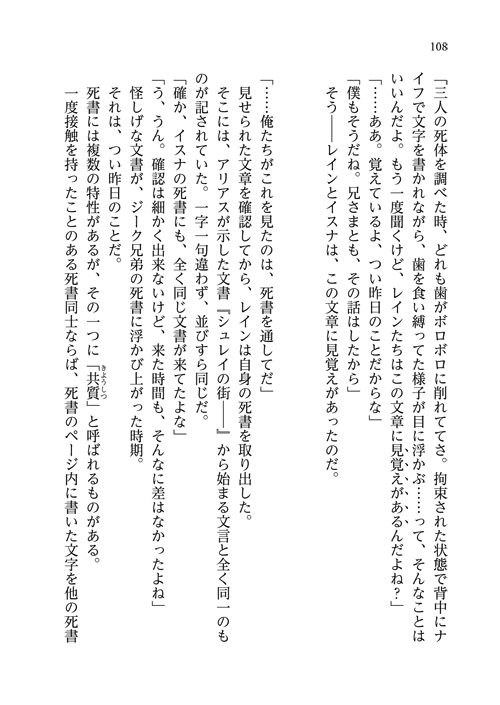 108
「三人の死体を調べた時、どれも歯がボロボロに削れててさ。拘束された状態で背中にナ
イフで文字を書かれながら、歯を食い縛ってた様子が目に浮かぶ……って、そんなことは
いいんだよ。もう一度聞くけど、レインたちはこの文章に見覚えがあるんだよね？」
「……ああ。覚えているよ、つい昨日のことだからな」
「僕もそうだね。兄さまとも、その話はしたから」
そう――レインとイスナは、この文章に見覚えがあったのだ。
「……俺たちがこれを見たのは、死書を通してだ」
見せられた文章を確認してから、レインは自身の死書を取り出した。
そこには、アリアスが示した文書『シュレイの街――』から始まる文言と全く同一のも
のが記されていた。一字一句違わず、並びすら同じだ。
「確か、イスナの死書にも、全く同じ文書が来てたよな」
「う、うん。確認は細かく出来ないけど、来た時間も、そんなに差はなかったよね」
怪しげな文書が、ジーク兄弟の死書に浮かび上がった時期。
それは、つい昨日のことだ。
死書には複数の特性があるが、その一つに「共質」と呼ばれるものがある。
きようしつ
一度接触を持ったことのある死書同士ならば、死書のページ内に書いた文字を他の死書